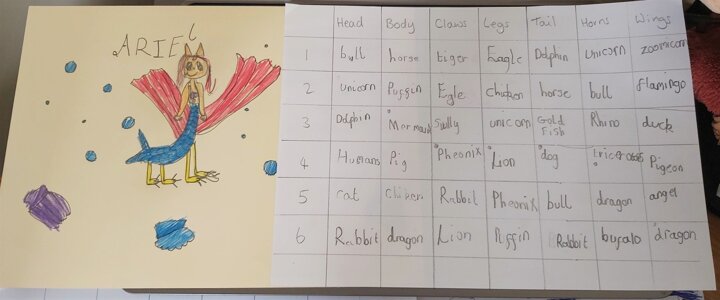 ARIEL
Head Body Claws Legs Tail Horns Wings
1 bull horse tiger Eagle Dolphin Unicorn zoomicorn
2 unicorn Puffin Egle chicken horse bull flamingo
3 Dolphin Mermaid Sully unicorn Gold Fish Rhino duck
4 Humans Pig Pheonix Lion dog Pigeon
5 cat chiken Rabbit Pheonix bull dragon angel
6 Rabbit dragon Lion Puffin Rabbit bufalo dragon